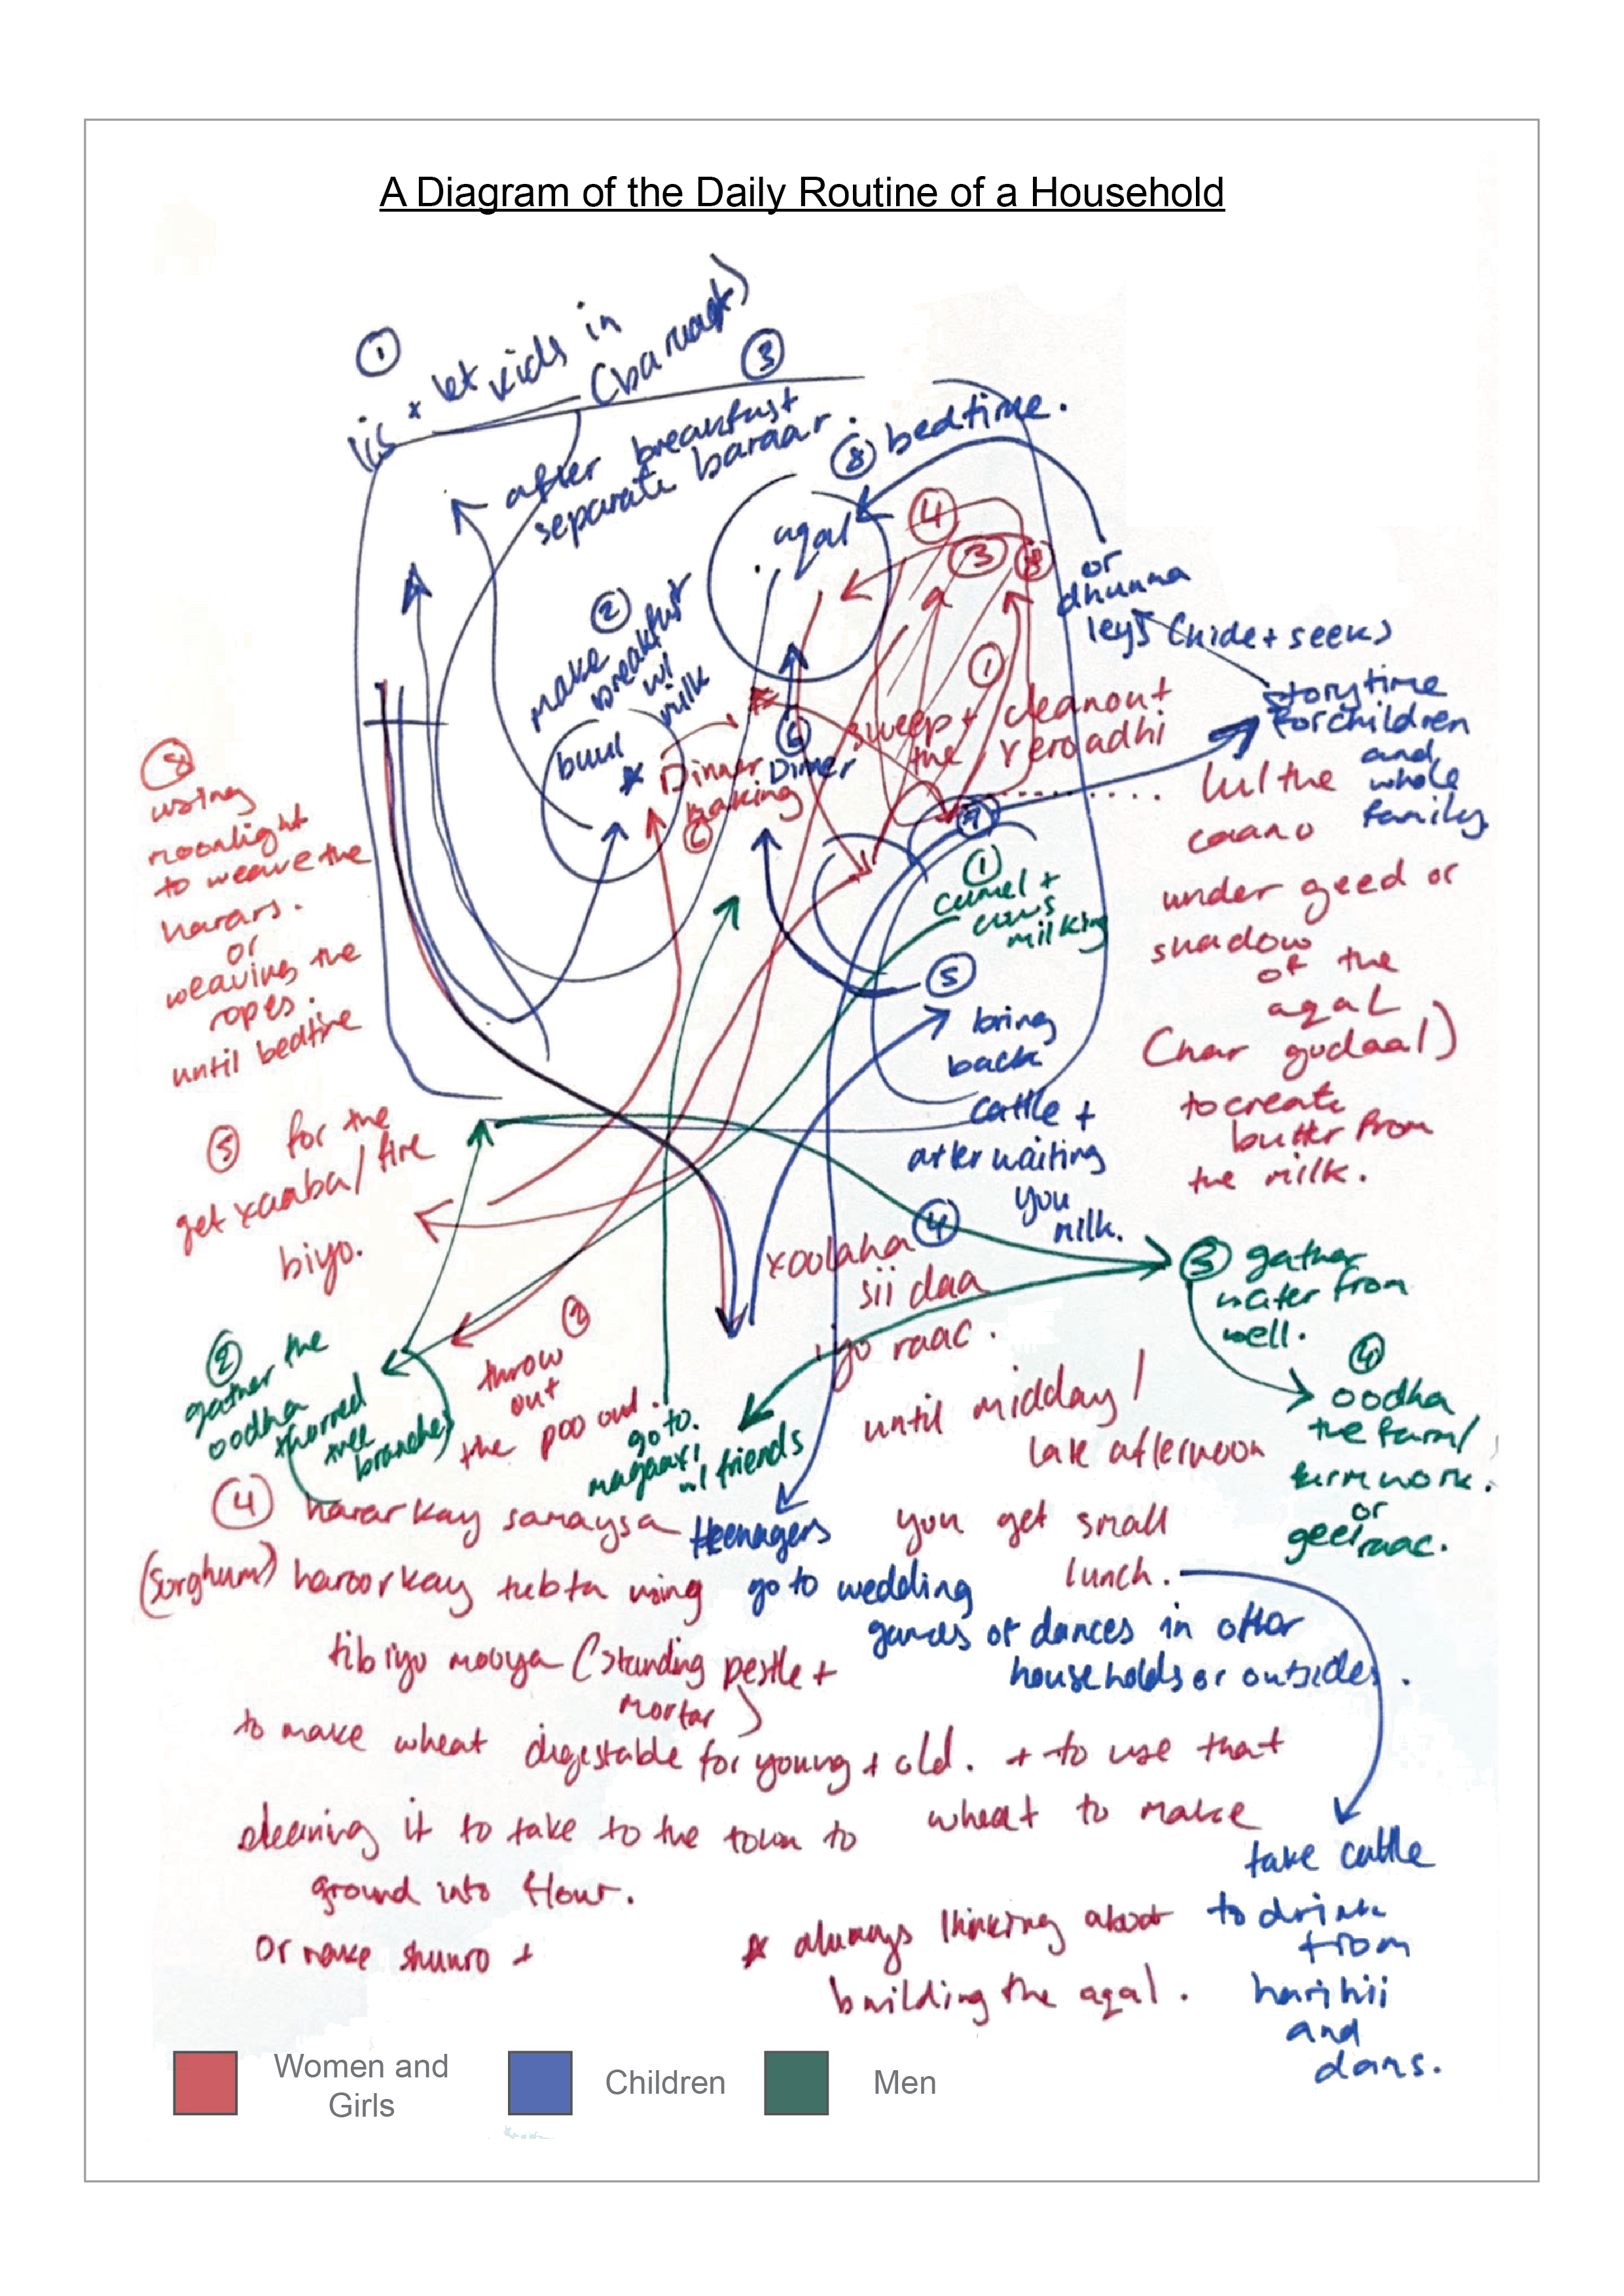 A Diagram of the Daily Routine of a Household
①
lis * let kids in
③
after breakfast
separate baraar.
⑧ bedtime.
agal
②
make
breakfast
w/
milk
buul
④
③
⑧
or
dhuuma
leys (hide + seek)
storytime
for children
and
whole
family
①
sweep + cleanout
the xeroadhi
Dinner
making
⑥
⑥
Dinner
⑦
①
camel +
cows
milking
lul the
caano
under geed or
shadow
of the
aqal
(har gudaal)
to create
butter from
the milk.
⑧
using
moonlight
to weave the
harars.
or
weaving the
ropes.
until bedtime
⑤
bring
back
cattle +
after waiting
you
milk.
⑤ for the
get xaaba/fire
biyo.
xoolaha ④
sii daa
iyo raac.
until midday/
late afternoon
you get small
lunch.
③ gather
water from
well.
④
oodha
the farm/
farm work.
or
geel raac.
②
gather the
oodha
thorned
tree
branches
②
throw
out
the poo and.
go to.
w/ friends
teenagers
go to wedding
games or dances in other
households or outsides.
④ harar kay samaysa
(Sorghum) haroor kay tubta using
tib iyo mooya (standing pestle +
mortar)
to make wheat digestable for young + old. + to use that
cleaning it to take to the town to
wheat to make
ground into flour.
or make shuuro +
* always thinking about
building the aqal.
take cattle
to drink
from
harihii
and
dams.
Women and
Girls
Children
Men